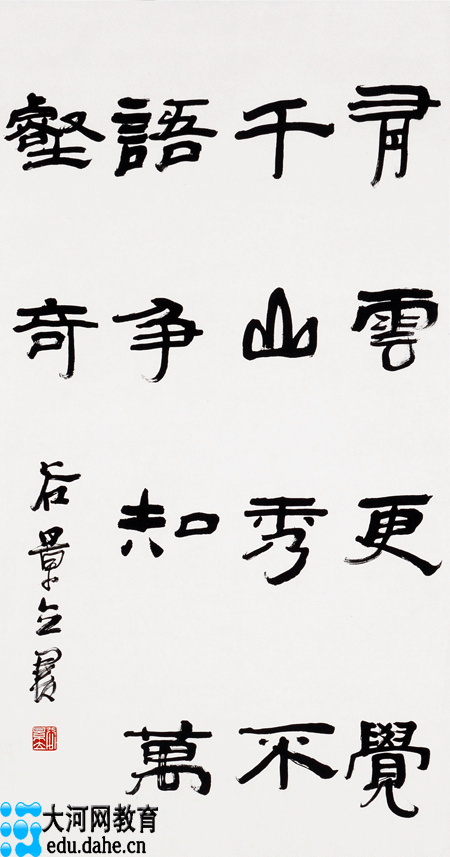 有雲更覺
千山秀不
語争知萬
壑奇
景立
大河网教育
edu.dahe.cn